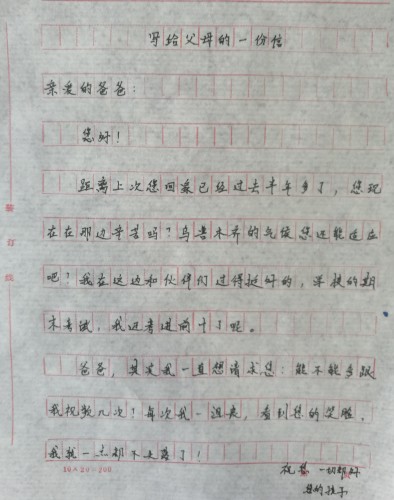 写给父母的一份信
亲爱的爸爸：
您好！
距离上次您回家已经过去半年多了，您现
在在那边辛苦吗？乌鲁木齐的气候您还能适应
吧？我在这边和伙伴们过得挺好的，学校的期
末考试，我还考进前十了呢。
爸爸，其实我一直想请求您：能不能多跟
我视频几次？每次我一沮丧，看到您的笑脸，
我就一点都不失落了！
祝愿 一切都好
您的孩子
10×20=200
装
订
线